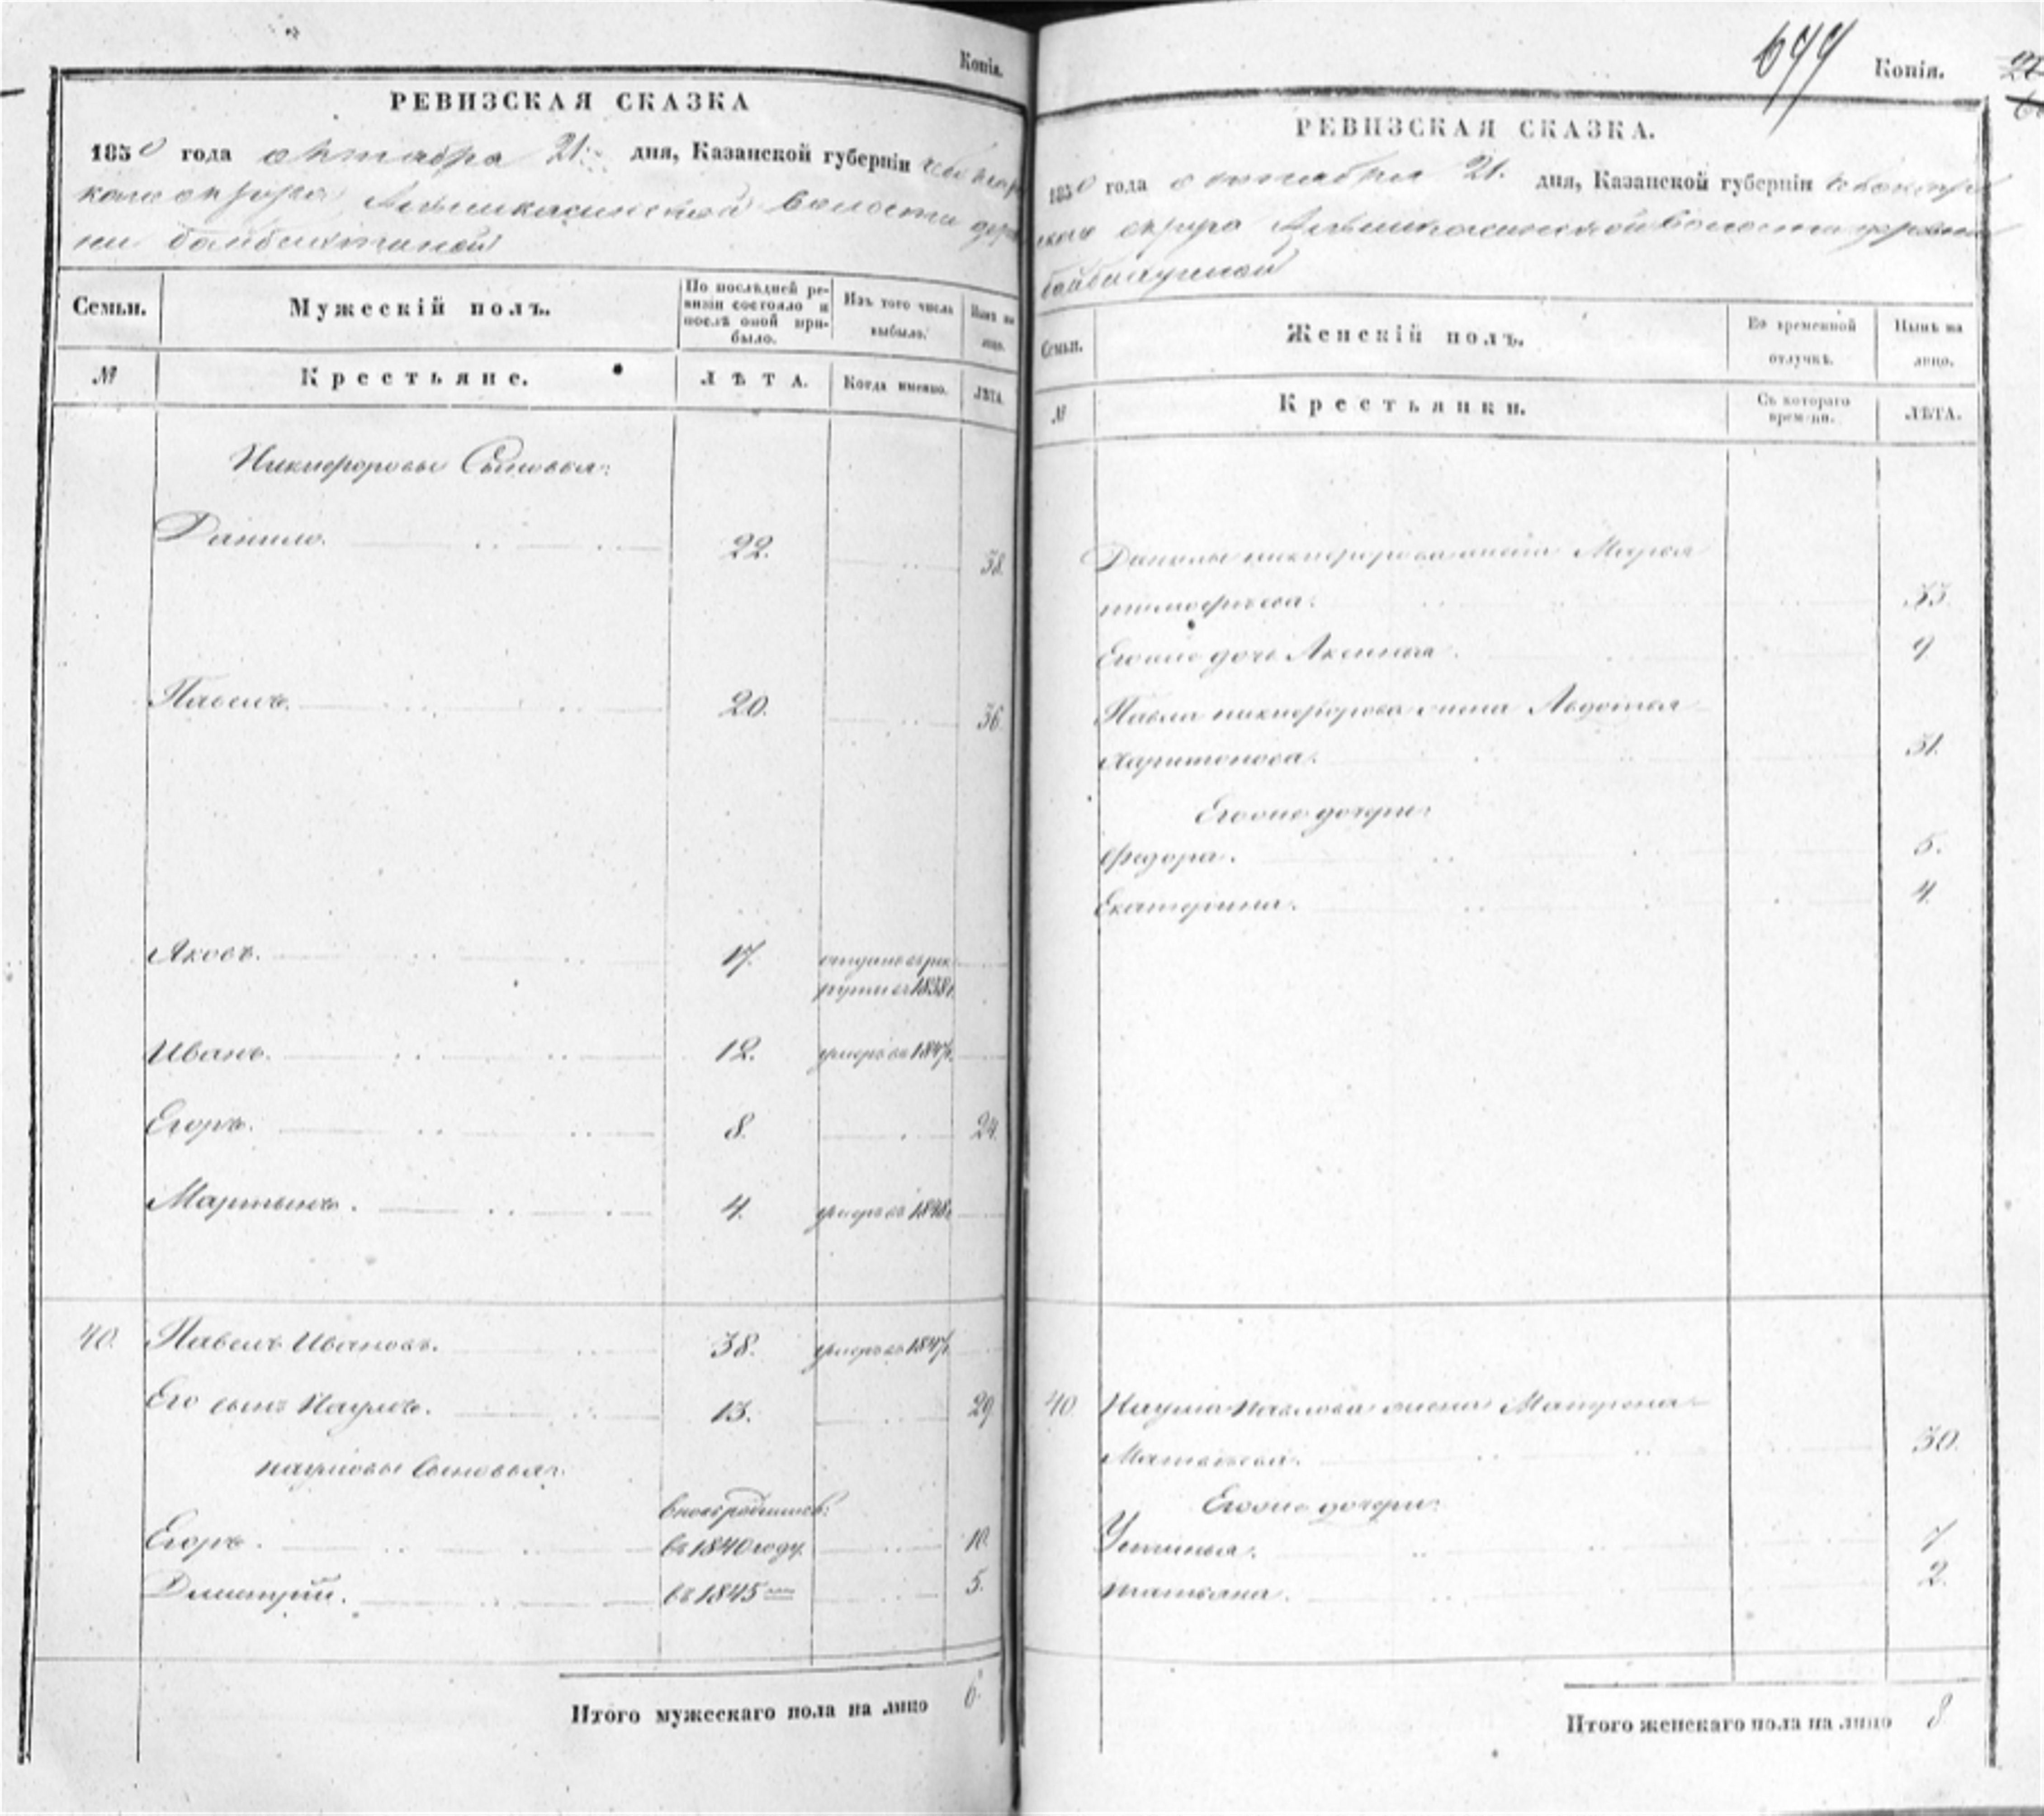 Копія.
РЕВИЗСКАЯ СКАЗКА
1850 года октября 21 дня, Казанской губерніи Чебоксар
скаго округа волости дерев
ни
Семьи.
Мужескій полъ.
По послѣдней ре-
визіи состояло и
послѣ оной при-
было.
Изъ того числа
выбыло.
Нынѣ на
лицо.
№
Крестьяне.
ЛѢТА.
Когда именно.
ЛѢТА.
Никифоровы Сыновья:
Данило. 22. 38.
Павелъ. 20. 36.
Яковъ. 17. отданъ въ рек
руты въ 1838 г.
Иванъ. 12. умеръ въ 1847 г.
Егоръ. 8. 24.
Мартынъ. 4. умеръ въ 1848 г.
40. Павелъ Ивановъ. 38. умеръ въ 1847 г.
Его сынъ Наумъ. 13. 29
Наумовы Сыновья:
вновь родились:
Егоръ. въ 1840 году. 10.
Дмитрій. въ 1845 5.
Итого мужескаго пола на лицо 6.
699
Копія.
РЕВИЗСКАЯ СКАЗКА.
1850 года октября 21. дня, Казанской губерніи Чебоксар
скаго округа волости деревни
Семьи.
Женскій полъ.
Во временной
отлучкѣ.
Нынѣ на
лицо.
№
Крестьянки.
Съ котораго
времени.
ЛѢТА.
Данилы Никифорова жена Марья
Тимофѣева. 33.
Его же дочь Аксинья. 9.
Павла Никифорова жена Авдотья
Харитонова. 31.
Его же дочери:
Федора. 5.
Екатерина. 4.
40. Наума Павлова жена Матрена
Матвѣева. 30.
Его же дочери:
Устинья. 7
Татьяна. 2.
Итого женскаго пола на лицо 8